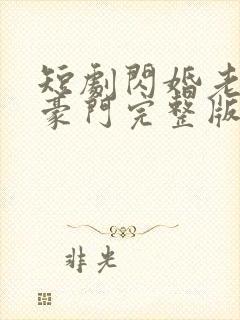 短劇閃婚老
豪門完整版
非光